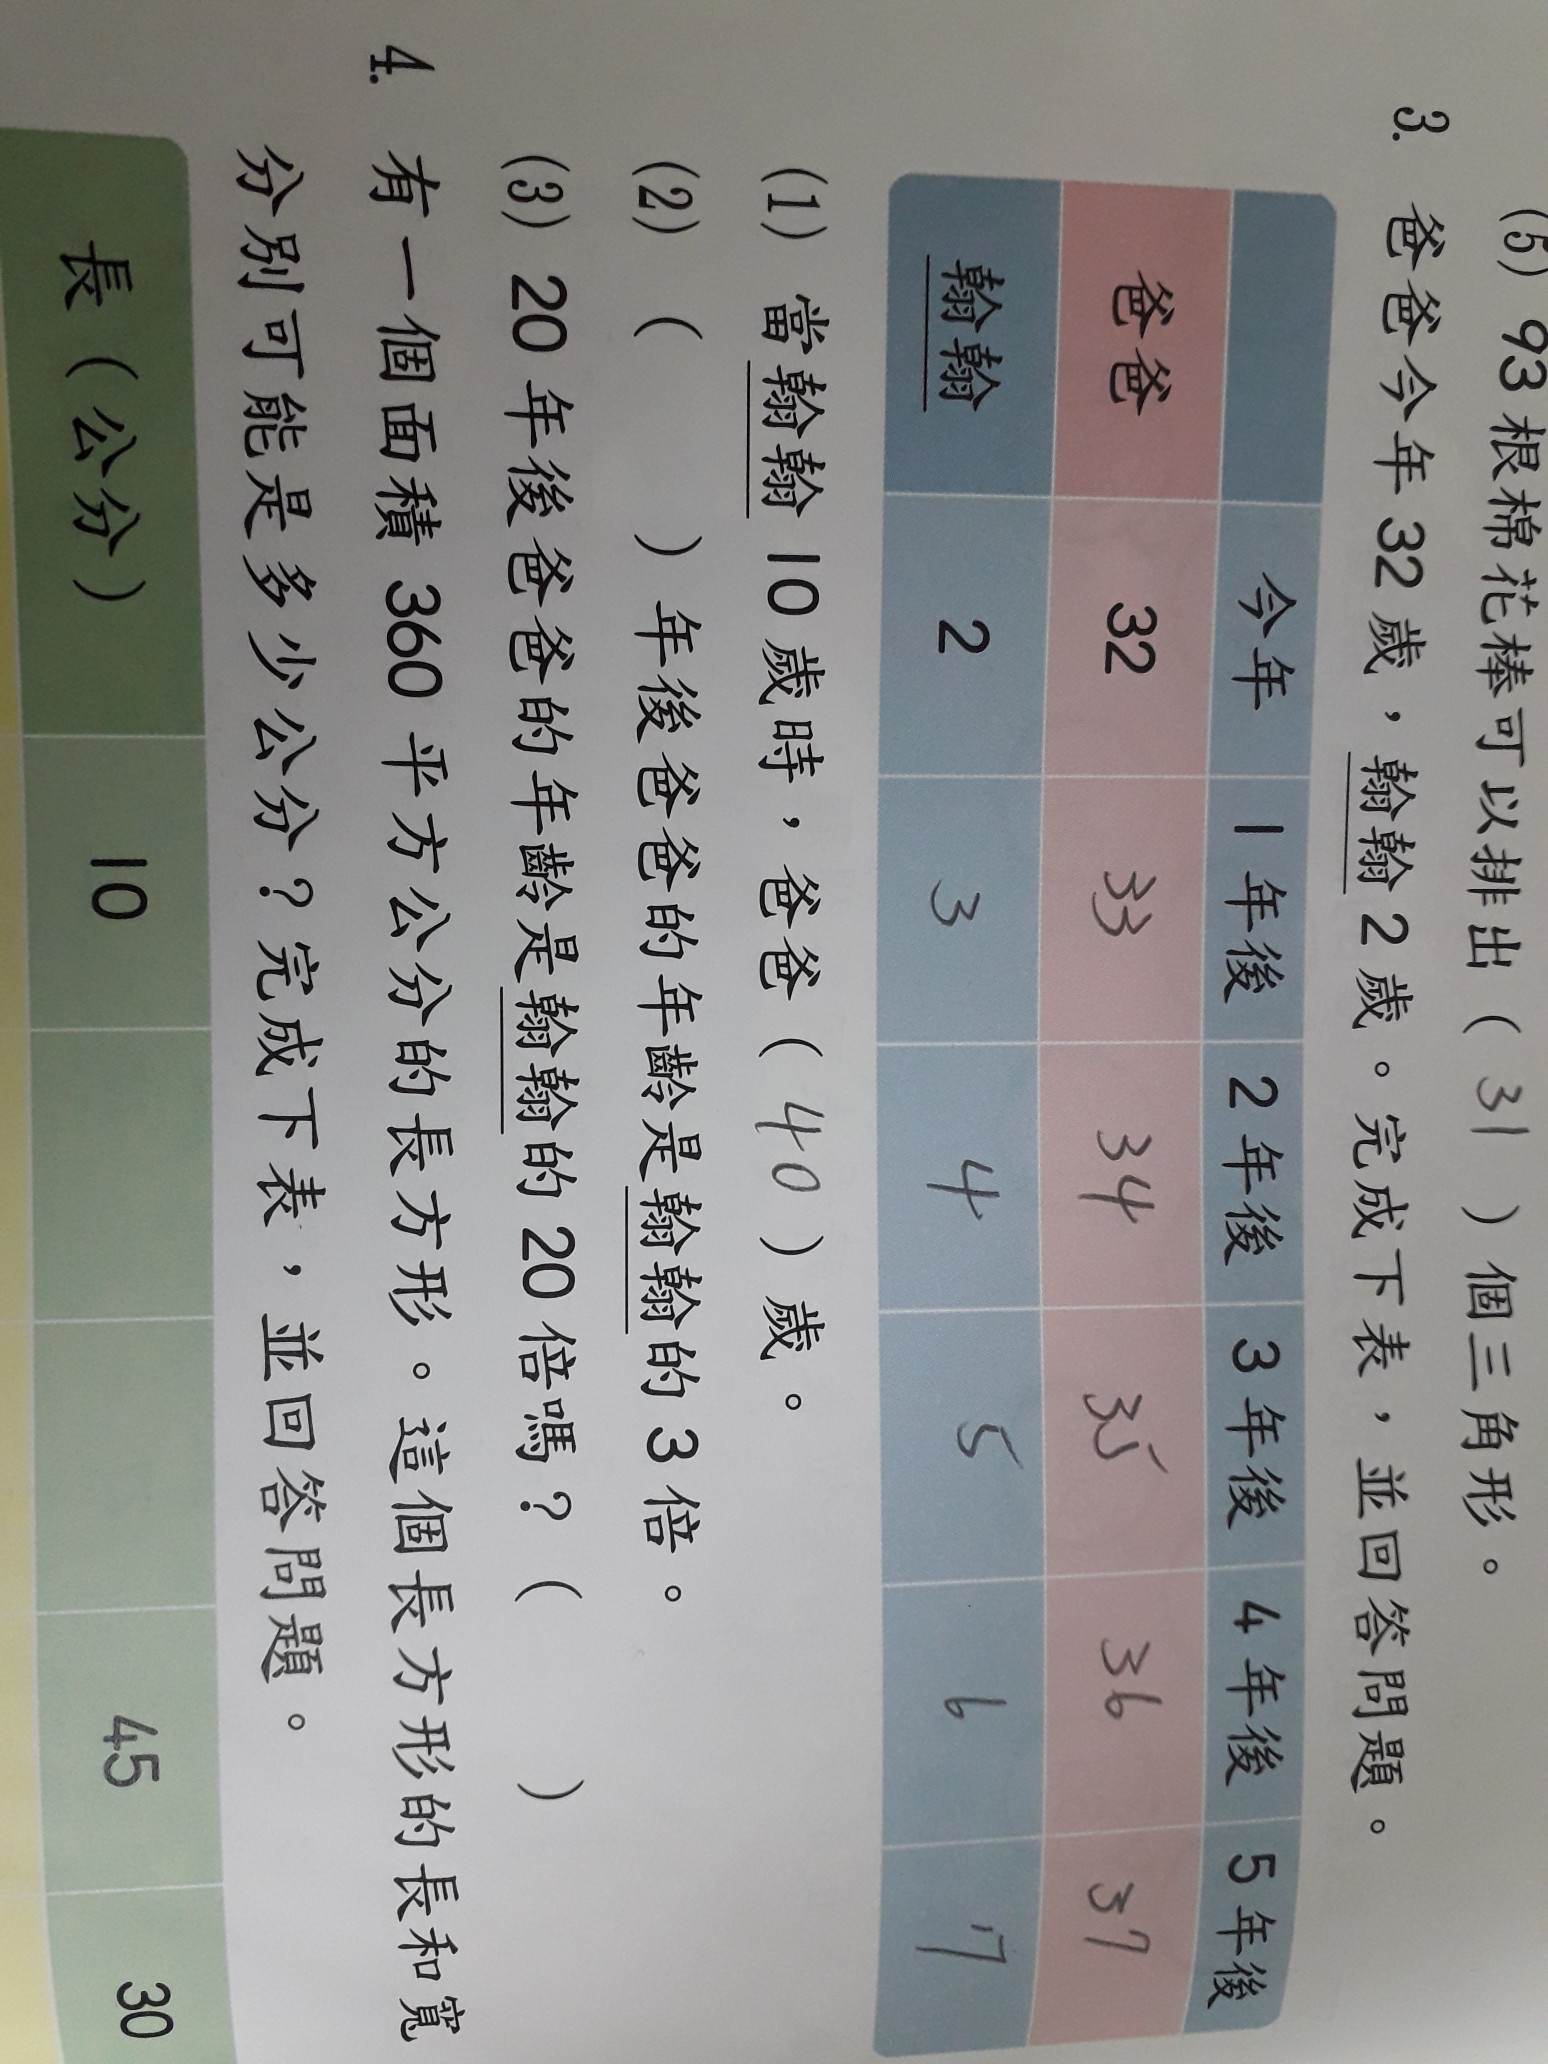 (5) 93根棉花棒可以排出( 31 )個三角形。
3. 爸爸今年32歲，翰翰2歲。完成下表，並回答問題。
今年 1年後 2年後 3年後 4年後 5年後
爸爸 32 33 34 35 36 37
翰翰 2 3 4 5 6 7
(1) 當翰翰10歲時，爸爸( 40 )歲。
(2) ( )年後爸爸的年齡是翰翰的3倍。
(3) 20年後爸爸的年齡是翰翰的20倍嗎？( )
4. 有一個面積360平方公分的長方形。這個長方形的長和寬
分別可能是多少公分？完成下表，並回答問題。
長(公分) 10 45 30